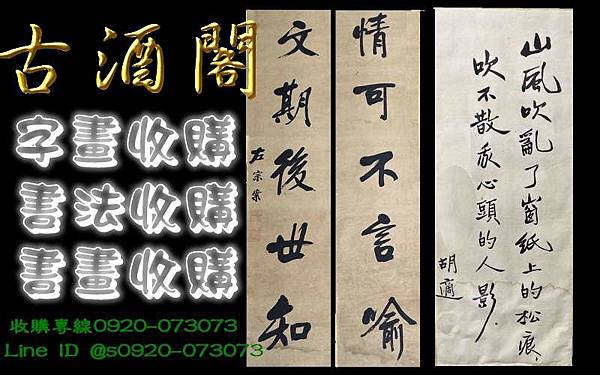 古酒閣
字畫收購
書法收購
書畫收購
收購專線0920-073073
Line ID @s0920-073073
情可不言喻
文期後世知
左宗棠
山風吹亂了窗紙上的松痕
吹不散我心頭的人影.
胡適